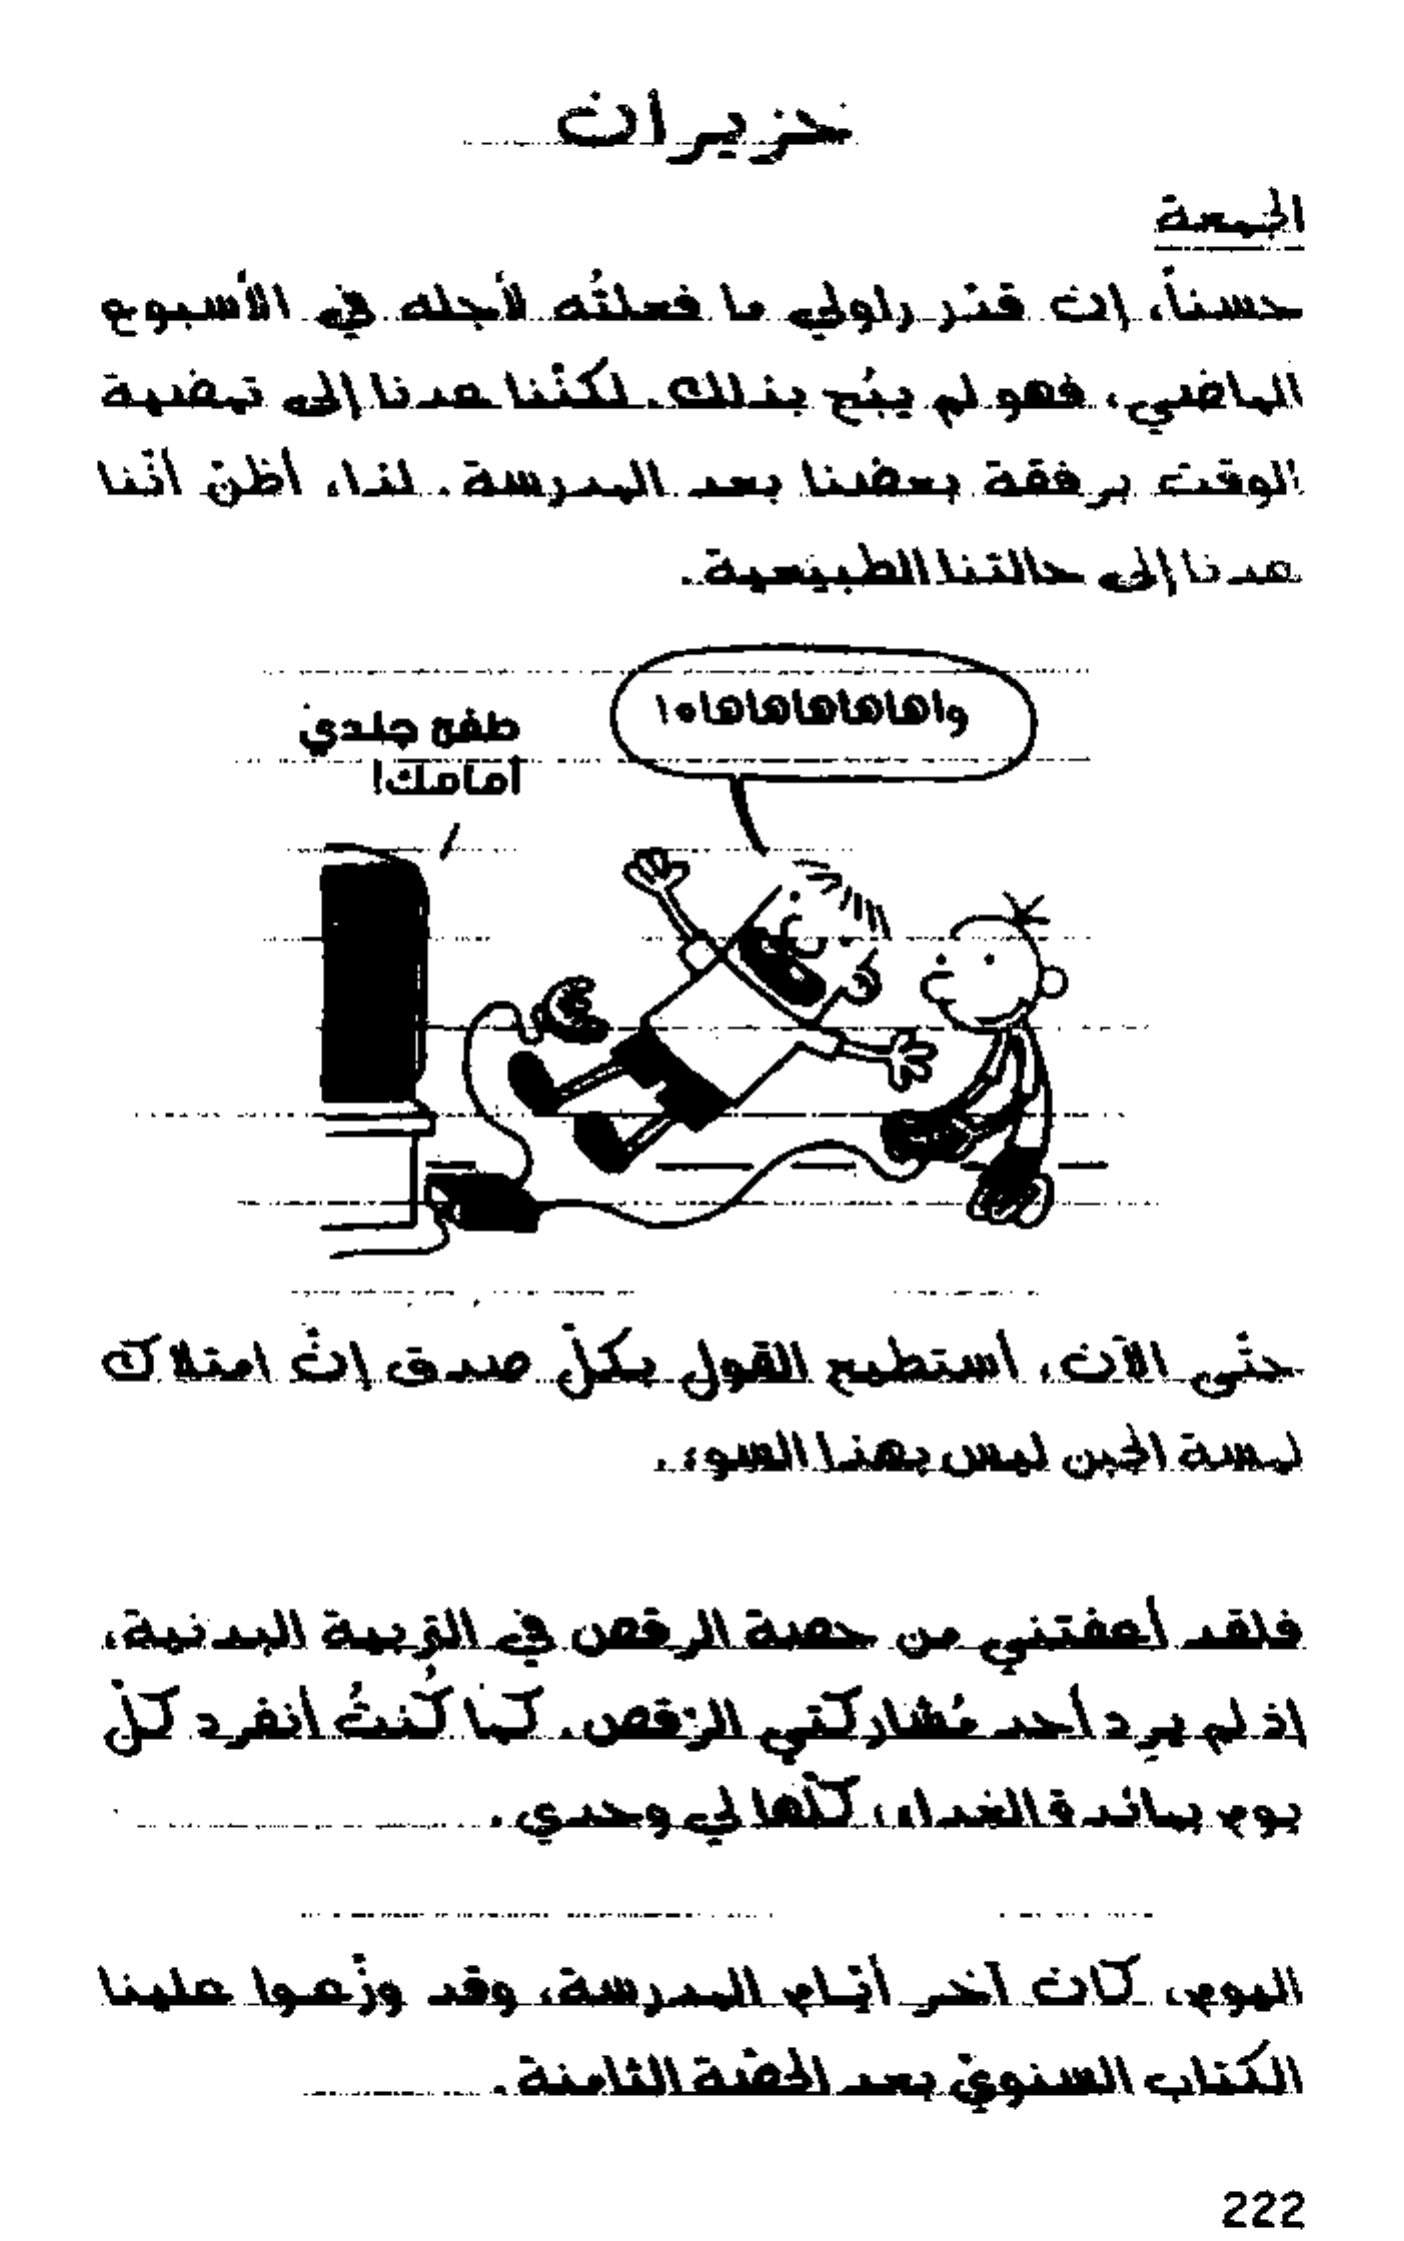 حزيران
الجمعة
حسناً، إن قدّر راولي ما فعلتُه لأجله في الأسبوع
الماضي، فهو لم يبُح بذلك. لكنّنا عدنا إلى تمضية
الوقت برفقة بعضنا بعد المدرسة. لذا، أظنّ أنّنا
عدنا إلى حالتنا الطبيعية.
واهاهاهاهاهاهاه!
طفح جلدي
أمامك!
حتّى الآن، أستطيع القول بكلّ صدق إنّ امتلاك
لمسة الجبن ليس بهذا السوء.
فلقد أعفتني من حصة الرقص في التربية البدنية،
إذ لم يرِد أحد مُشاركتي الرّقص. كما كُنتُ أنفرد كلّ
يوم بمائدة الغداء، كلّها لي وحدي.
اليوم، كان آخر أيّام المدرسة، وقد وزّعوا علينا
الكتاب السنويّ بعد الحصّة الثامنة.
222